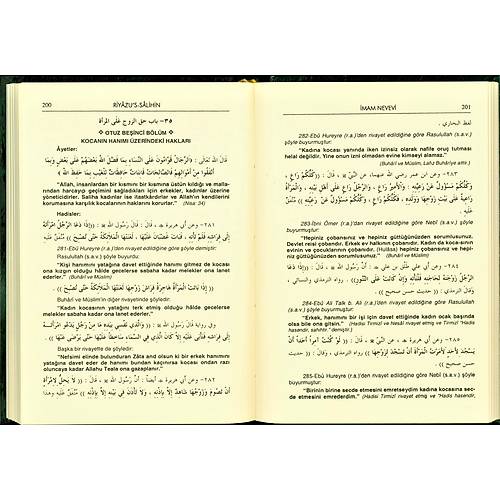 200 RİYÂZU'S-SÂLİHÎN
٣٥- باب حق الزوج على المرأة
❖ OTUZ BEŞİNCİ BÖLÜM ❖
KOCANIN HANIMI ÜZERİNDEKİ HAKLARI
Âyetler:
قال الله تعالى : ﴿ الرجال قوامون على النساء بما فضل الله بعضهم على بعض وبما
أنفقوا من أموالهم فالصالحات قانتات حافظات للغيب بما حفظ الله ﴾
"Allah, insanlardan bir kısmını bir kısmına üstün kıldığı ve malla-
rından harcayıp geçimini sağladıkları için erkekler, kadınlar üzerine
yöneticidirler. Saliha kadınlar ise itaatkârdırlar ve Allah'ın kendilerini
korumasına karşılık kocalarının haklarını korurlar." (Nisa: 34)
Hadisler:
٢٨١- وعن أبي هريرة قال : قال رسول الله : (( إذا دعا الرجل امرأته
إلى فراشه فلم تأته ، فبات غضبان عليها ، لعنتها الملائكة حتى تصبح )) . متفق عليه
281-Ebû Hureyre (r.a.)'den rivayet edildiğine göre şöyle demiştir:
Rasulullah (s.a.v.) şöyle buyurdu:
"Kişi hanımını yatağına davet ettiğinde hanımı gitmez de kocası
ona kızgın olduğu hâlde gecelerse sabaha kadar melekler ona lanet
ederler." (Buhârî ve Müslim)
(( إذا باتت المرأة هاجرة فراش زوجها لعنتها الملائكة حتى تصبح )) .
Buhârî ve Müslim'in diğer rivayetinde şöyledir:
"Kadın kocasının yatağını terk etmiş olduğu hâlde gecelerse
melekler sabaha kadar ona lanet ederler."
وفي رواية قال رسول الله : (( والذي نفسي بيده ما من رجل يدعو امرأته
إلى فراشه فتأبى عليه إلا كان الذي في السماء ساخطا عليها حتى يرضى عنها )) .
Başka bir rivayette da şöyledir:
"Nefsimi elinde bulunduran Zâta and olsun ki bir erkek hanımını
yatağına davet eder de hanımı bundan kaçınırsa kocası ondan razı
oluncaya kadar Allahu Teala ona gazaplanır."
٢٨٢- وعن أبي هريرة أيضا : أن رسول الله ، قال : (( لا يحل لامرأة
أن تصوم وزوجها شاهد إلا بإذنه ، ولا تأذن في بيته إلا بإذنه )) متفق عليه وهذا
İMAM NEVEVÎ 201
لفظ البخاري .
282-Ebû Hureyre (r.a.)'den rivayet edildiğine göre Rasulullah (s.a.v.)
şöyle buyurmuştur:
"Kadına kocası yanında iken izinsiz olarak nafile oruç tutması
helal değildir. Yine onun izni olmadan evine kimseyi alamaz."
(Buhârî ve Müslim, Lafız Buhârîye aittir.)
٢٨٣- وعن ابن عمر رضي الله عنهما، عن النبي ، قال : (( كلكم راع ،
وكلكم مسئول عن رعيته : والأمير راع ، والرجل راع على أهل بيته ، والمرأة
راعية على بيت زوجها وولده ، فكلكم راع ، وكلكم مسئول عن رعيته )) . متفق
عليه
283-İbni Ömer (r.a.)'dan rivayet edildiğine göre Nebî (s.a.v.) şöyle
buyurmuştur: "Hepiniz çobansınız ve hepiniz güttüğünüzden sorumlusunuz.
Devlet reisi çobandır. Erkek ev halkının çobandır. Kadın da koca-sının
evinin ve çocuğunun çobanıdır. (Hülasa) hepiniz çobansınız ve hepi-
niz güttüğünüzden sorumlusunuz." (Buhârî ve Müslim)
٢٨٤- وعن أبي علي طلق بن علي : أن رسول الله ، قال : (( إذا دعا
الرجل زوجته لحاجته فلتأته وإن كانت على التنور )) . رواه الترمذي والنسائي ،
وقال الترمذي : (( حديث حسن صحيح )) .
284-Ebû Ali Talk b. Ali (r.a.)'dan rivayet edildiğine göre Rasulullah
(s.a.v.) şöyle buyurmuştur:
"Erkek, hanımını bir işi için davet ettiğinde kadın ocak başında
olsa bile ona gitsin." (Hadisi Tirmizî ve Nesâî rivayet etmiş ve Tirmizî "Hadis
hasendir, sahihtir." demiştir.)
٢٨٥- وعن أبي هريرة ، عن النبي ، قال : (( لو كنت آمرا أحدا أن
يسجد لأحد لأمرت المرأة أن تسجد لزوجها )) . رواه الترمذي ، وقال : (( حديث
حسن صحيح )) .
285-Ebû Hureyre (r.a.)'den rivayet edildiğine göre Nebî (s.a.v.) şöyle
buyurmuştur:
"Birinin birine secde etmesini emretseydim kadına kocasına sec-
de etmesini emrederdim." (Hadisi Tirmizî rivayet etmiş ve "Hadis hasendir,